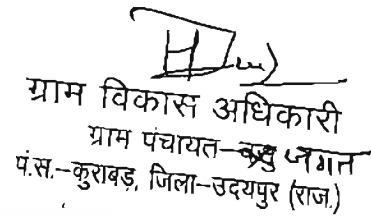 ग्राम विकास अधिकारी
ग्राम पंचायत– जगत
पं.स.–कुराबड़, जिला–उदयपुर (राज.)